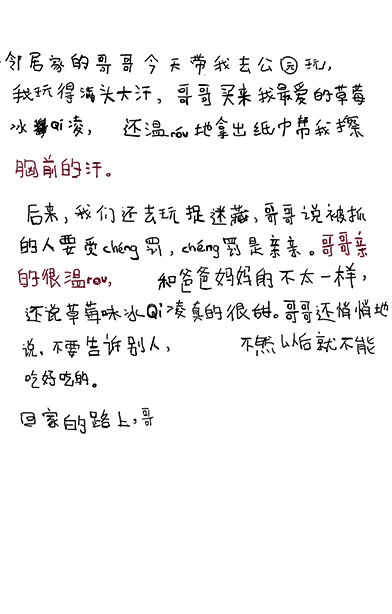 邻居家的哥哥今天带我去公园玩,
我玩得满头大汗,哥哥买来我最爱的草莓
冰Qi凌,还温róu地拿出纸巾帮我擦
胸前的汗。
后来,我们还去玩捉迷藏,哥哥说被抓
的人要受chéng罚,chéng罚是亲亲。哥哥亲
的很温rou,和爸爸妈妈的不太一样,
还说草莓味冰Qi凌真的很甜。哥哥还悄悄地
说,不要告诉别人,不然以后就不能
吃好吃的。
回家的路上,哥